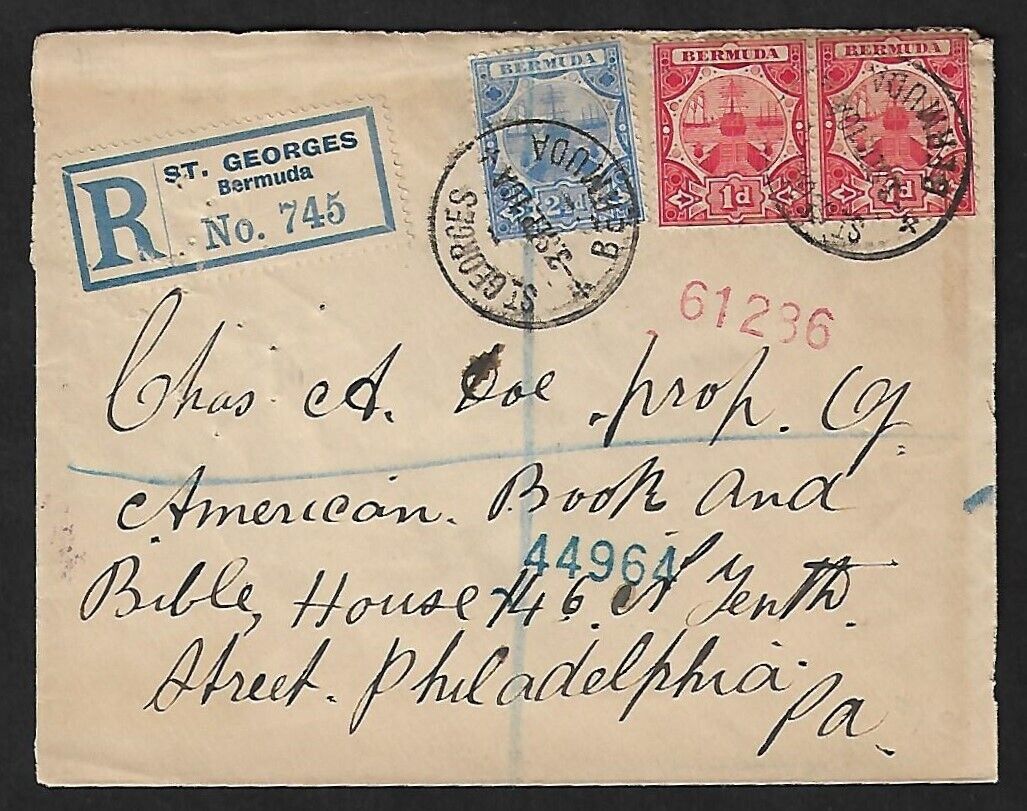 R
ST. GEORGES
Bermuda
No. 745
BERMUDA
2½d
BERMUDA
1d
BERMUDA
1d
ST GEORGES
BERMUDA
ST GEORGES
BERMUDA
61286
Chas A. prop. Of
American. Book and
44964
Bible, House 46 N Tenth.
Street. Philadelphia.
Pa.